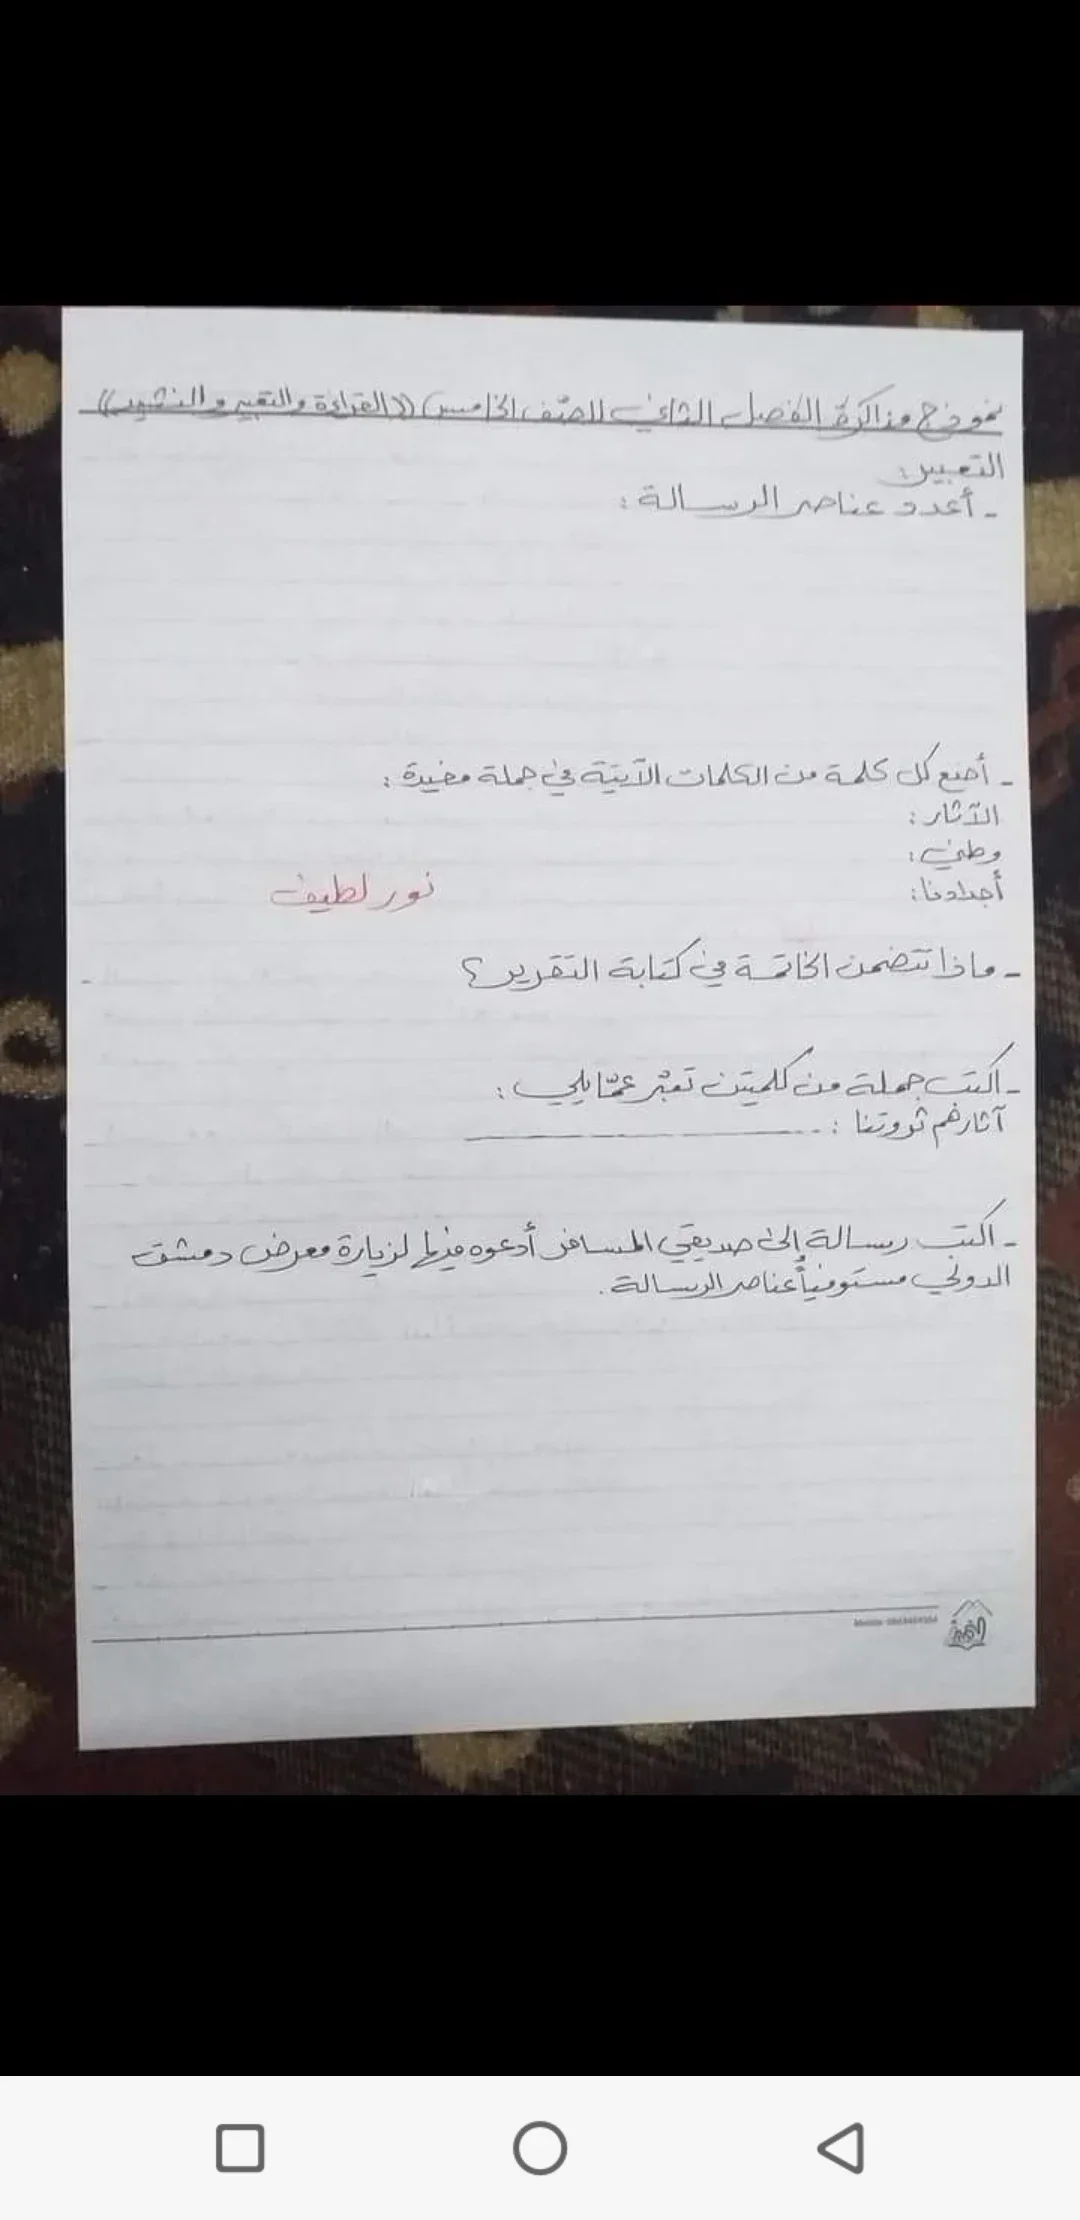 نموذج مذاكرة الفصل الثاني للصّف الخامس ((القراءة والتعبير والنشيد))
التعبير:
- أعدد عناصر الرسالة :
- أضع كل كلمة من الكلمات الآتية في جملة مفيدة :
الآثار :
وطني :
أجدادنا :
نور لطيف
- ماذا تتضمن الخاتمة في كتابة التقرير ؟
- اكتب جملة من كلمتين تعبّر عمّا يلي :
آثارهم ثروتنا :
- اكتب رسالة إلى صديقي المسافر أدعوه فيها لزيارة معرض دمشق
الدولي مستوفياً عناصر الرسالة .